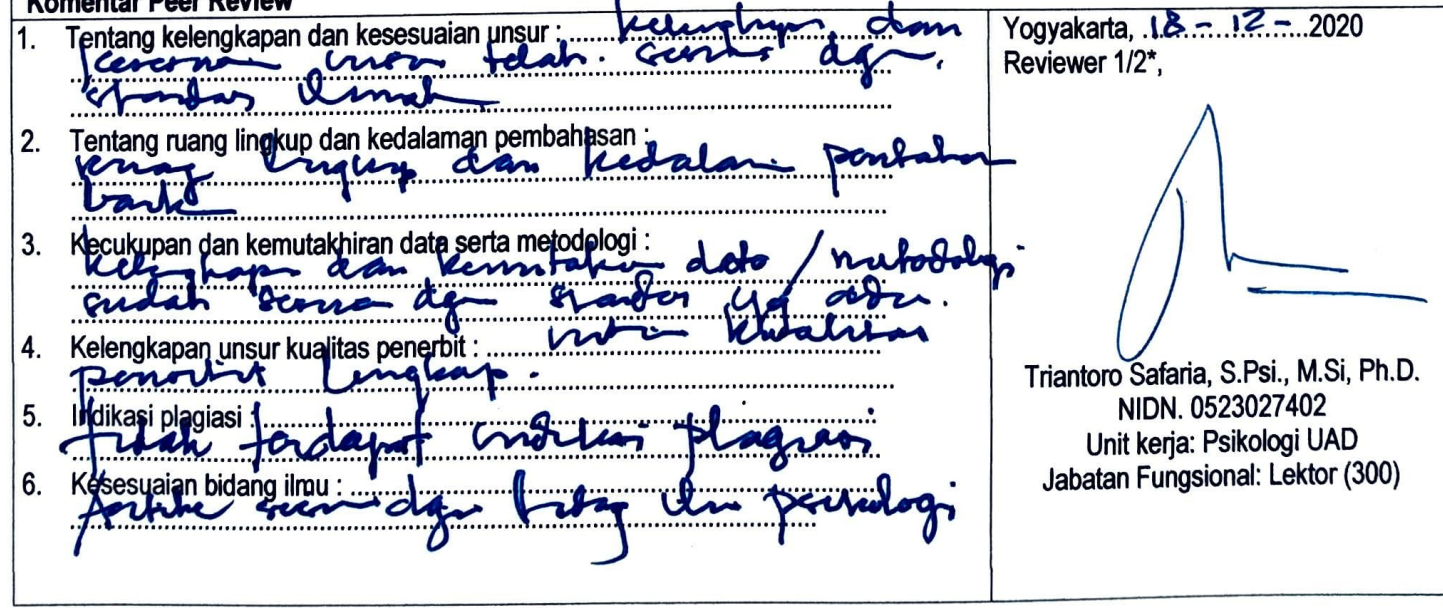 Komentar Peer Review
1. Tentang kelengkapan dan kesesuaian unsur : kelengkapan dan
kesesuaian unsur telah sesuai dgn
standar ilmiah
2. Tentang ruang lingkup dan kedalaman pembahasan :
ruang lingkup dan kedalaman pembahasan
baik
3. Kecukupan dan kemutakhiran data serta metodologi :
kelengkapan dan kemutakhiran data / metodologi
sudah sesuai dgn standar yg ada.
4. Kelengkapan unsur kualitas penerbit : unsur kualitas
penerbit lengkap.
5. Indikasi plagiasi :
tidak terdapat indikasi plagiasi
6. Kesesuaian bidang ilmu :
Artikel sesuai dgn bidang ilmu psikologi
Yogyakarta, 18 - 12 - 2020
Reviewer 1/2*,
Triantoro Safaria, S.Psi., M.Si, Ph.D.
NIDN. 0523027402
Unit kerja: Psikologi UAD
Jabatan Fungsional: Lektor (300)